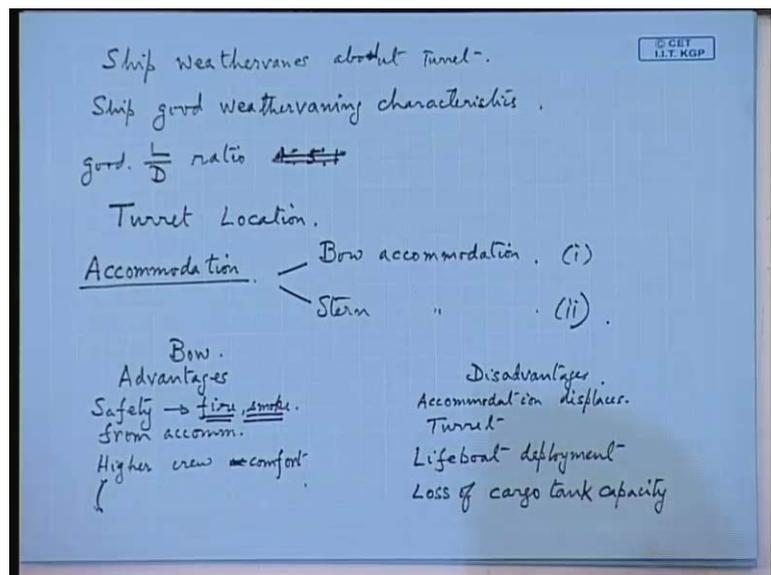 © CET
I.I.T. KGP
Ship weathervanes about Turret.
Ship good weathervaning characteristics.
good. L/D ratio
Turret Location.
Accommodation. Bow accommodation. (i)
Stern " (ii).
Bow.
Advantages
Safety → fire, smoke.
from accomm.
Higher crew comfort
(
Disadvantages.
Accommodation displaces.
Turret
Lifeboat deployment
Loss of cargo tank capacity